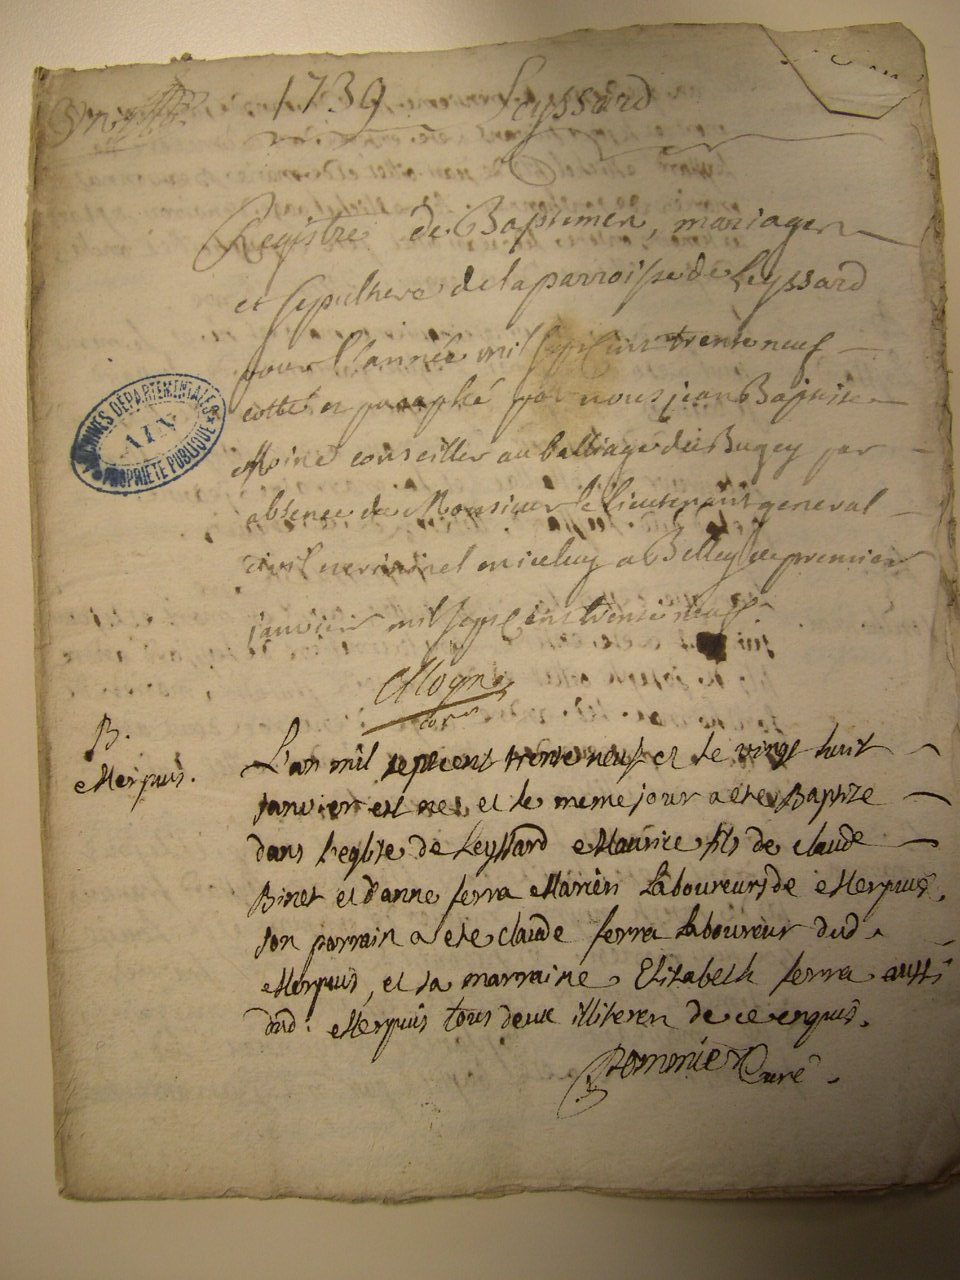 1739 Leyssard
Registre de Baptemes, mariages
et sepulture de la parroisse de Leyssard
pour l'année mil sept cens trente neuf
cotté et paraphé par nous jean Baptiste
conseiller au balliage du Bugey par
absence de Monsieur le lieutenant general
civil et criminel en iceluy a Belley ce premier
janvier mil sept cens trente neuf
ARCHIVES DÉPARTEMENTALES
AIN
PROPRIÉTÉ PUBLIQUE
B.
Merpuis.
L'an mil septcent trente neuf et le vingt huit
janvier est né et le meme jour a été Baptize
dans l'eglise de Leyssard Maurice fils de claude
Binet et d'anne ferra Mariés Laboureurs de Merpuis.
son parrain a ete claude ferra Laboureur dud.
Merpuis, et sa marraine Elizabeth ferra aussi
dud: Merpuis tous deux illiteres de ce enquis.
Pommier Curé.